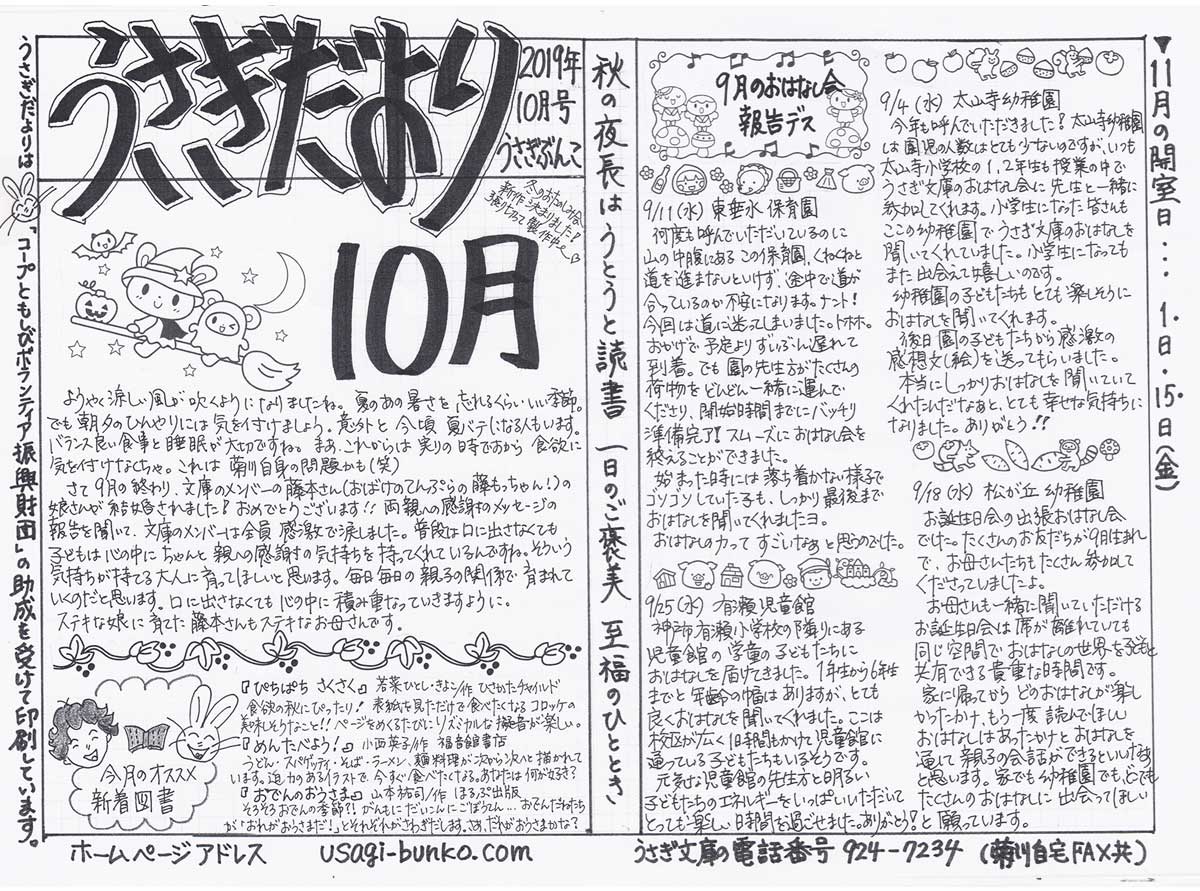 うさぎだより
2019年
10月号
うさぎぶんこ
冬のおたのしみ会
新作決まりました!
張り切って製作中〜
10月
ようやく涼しい風が吹くようになりましたね。夏のあの暑さを忘れるくらいいい季節。
でも朝夕のひんやりには気を付けましょう。意外と今頃夏バテになる人もいます。
バランス良い食事と睡眠が大切ですね。まあ、これからは実りの時ですから食欲に
気を付けなくちゃ。これは菊川自身の問題かも(笑)
さて9月の終わり、文庫のメンバーの藤本さん(おばけのてんぷらの藤もっちゃん!)の
娘さんが結婚されました!おめでとうございます!!両親への感謝のメッセージの
報告を聞いて、文庫のメンバーは全員感激で涙しました。普段は口に出さなくても
子どもは心の中にちゃんと親への感謝の気持ちを持ってくれているんですね。そういう
気持ちが持てる大人に育ってほしいと思います。毎日毎日の親子の関係で育まれて
いくのだと思います。口に出さなくても心の中に積み重なっていきますように。
ステキな娘に育てた藤本さんもステキなお母さんです。
今月のオススメ
新着図書
『ぴちぱち さくさく』 若菜ひとし・きよこ/作 ひさかたチャイルド
食欲の秋にぴったり!表紙を見ただけで食べたくなるコロッケの
美味しそうなこと!!ページをめくるたびにリズミカルな擬音が楽しい。
『めんたべよう!』 小西英子/作 福音館書店
うどん・スパゲッティ・そば・ラーメン、麺料理が次から次へと描かれて
います。迫力のあるイラストで、今すぐ食べたくなる。あなたは何が好き?
『おでんのおうさま』 山本祐司/作 ほるぷ出版
そろそろおでんの季節?!がんもにだいこんにごぼうてん…おでんだねたち
が「おれがおうさまだ!」とそれぞれがさわぎだします。さあ、だれがおうさまかな?
うさぎだよりは「コープともしびボランティア振興財団」の助成を受けて印刷しています。
秋の夜長は うとうと読書 一日のご褒美 至福のひととき
9月のおはなし会
報告デス
9/4(水) 太山寺幼稚園
今年も呼んでいただきました!太山寺幼稚園
は園児の人数はとても少ないのですが、いつも
太山寺小学校の1,2年生も授業の中で
うさぎ文庫のおはなし会に先生と一緒に
参加してくれます。小学生になった皆さんも
ここの幼稚園でうさぎ文庫のおはなしを
聞いてくれていました。小学生になっても
また出会えて嬉しいのです。
幼稚園の子どもたちもとても楽しそうに
おはなしを聞いてくれます。
後日園の子どもたちから感激の
感想文(絵)を送ってもらいました。
本当にしっかりおはなしを聞いていて
くれたんだなあと、とても幸せな気持ちに
なりました。ありがとう!!
9/11(水) 東垂水保育園
何度も呼んでいただいているのに
山の中腹にあるこの保育園、くねくねと
道を進まなしといけず、途中で道が
合っているのか不安になります。ナント!
今回は道に迷ってしまいました。トホホ。
おかげで予定よりずいぶん遅れて
到着。でも園の先生方がたくさんの
荷物をどんどん一緒に運んで
くださり、開始時間までにバッチリ
準備完了!スムーズにおはなし会を
終えることができました。
始まった時には落ち着かない様子で
ゴソゴソしていた子も、しっかり最後まで
おはなしを聞いてくれましたヨ。
おはなしの力ってすごいなぁと思うのでした。
9/18(水) 松が丘幼稚園
お誕生日会の出張おはなし会
でした。たくさんのお友だちが9月生まれ
で、お母さんたちもたくさん参加して
くださっていましたよ。
お母さんも一緒に聞いていただける
お誕生日会は席が離れていても
同じ空間でおはなしの世界を子どもと
共有できる貴重な時間です。
家に帰ってからどのおはなしが楽し
かったかけ、もう一度読んでほしい
おはなしはあったかとおはなしを
通して親子の会話ができるといいなぁ
と思います。家でも幼稚園でも、どこでも
たくさんのおはなしに出会ってほしい
と願っています。
9/25(水) 有瀬児童館
神戸市有瀬小学校の隣りにある
児童館の学童の子どもたちに
おはなしを届けてきました。1年生から6年生
までと年齢の幅はありますが、とても
良くおはなしを聞いてくれました。ここは
校区が広く1時間もかけて児童館に
通っている子どもたちもいるそうです。
元気な児童館の先生方と明るい
子どもたちのエネルギーをいっぱいいただいて
とっても楽しい時間を過ごせました。ありがとう!
▼11月の開室日… 1・日・15・日(金)
ホームページアドレス usagi-bunko.com
うさぎ文庫の電話番号 924-7234 (菊川自宅FAX共)